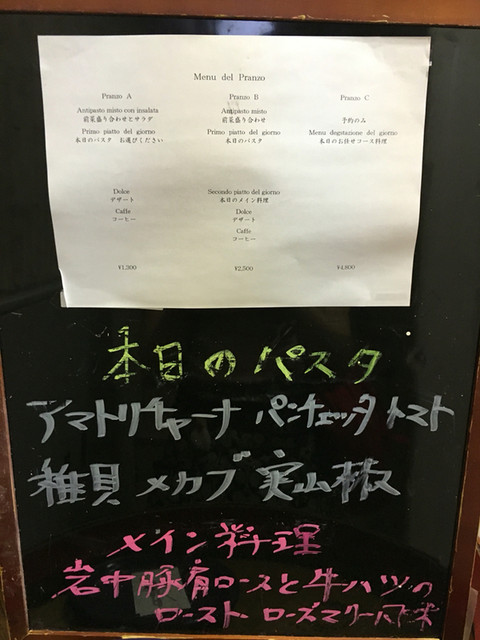 Menu del Pranzo
Pranzo A
Antipasto misto con insalata
前菜盛り合わせとサラダ
Primo piatto del giorno
本日のパスタ お選びください
Dolce
デザート
Caffe
コーヒー
¥1,300
Pranzo B
Antipasto misto
前菜盛り合わせ
Primo piatto del giorno
本日のパスタ
Secondo piatto del giorno
本日のメイン料理
Dolce
デザート
Caffe
コーヒー
¥2,500
Pranzo C
予約のみ
Menu degustazione del giorno
本日のお任せコース料理
¥4,800
本日のパスタ
アマトリチャーナ パンチェッタ トマト
稚貝 メカブ 実山椒
メイン料理
岩中豚肩ロースと牛ハツの
ロースト ローズマリー風味